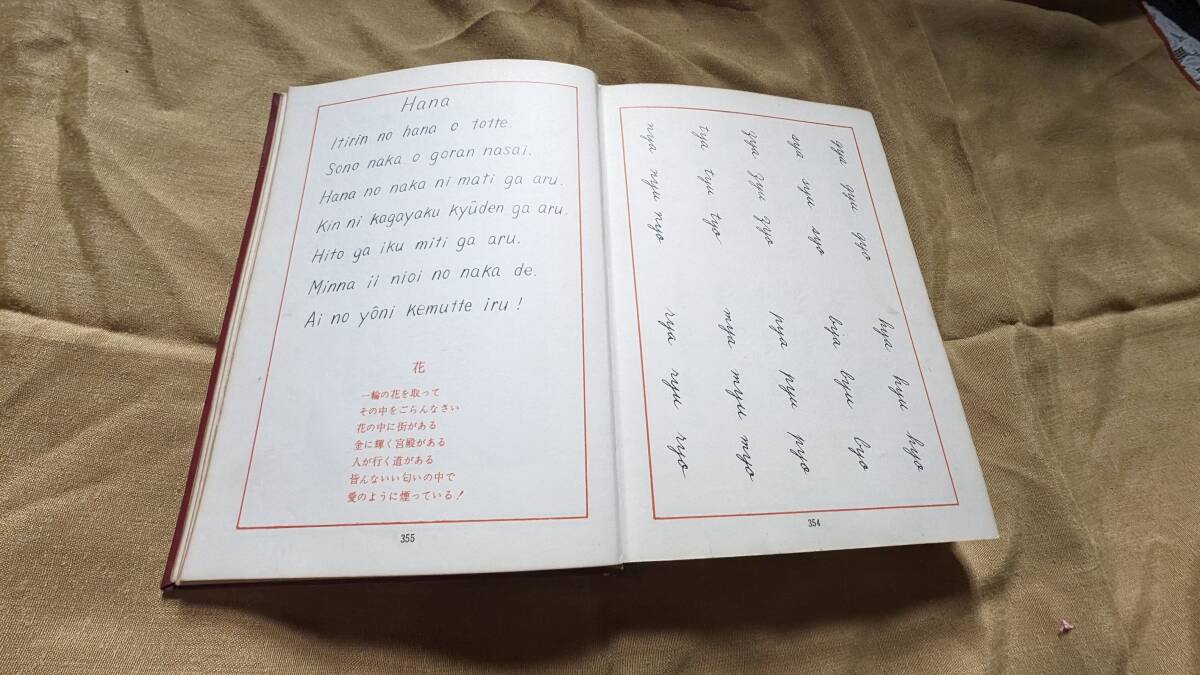 gya gyu gyo hya hyu hyo
sya syu syo bya byu byo
zya zyu zyo pya pyu pyo
tya tyu tyo mya myu myo
nya nyu nyo rya ryu ryo
354
Hana
Itirin no hana o totte.
Sono naka o goran nasai.
Hana no naka ni mati ga aru.
Kin ni kagayaku kyūden ga aru.
Hito ga iku miti ga aru.
Minna ii nioi no naka de.
Ai no yôni kemutte iru !
花
一輪の花を取って
その中をごらんなさい
花の中に街がある
金に輝く宮殿がある
人が行く道がある
皆んないい匂いの中で
愛のように煙っている！
355